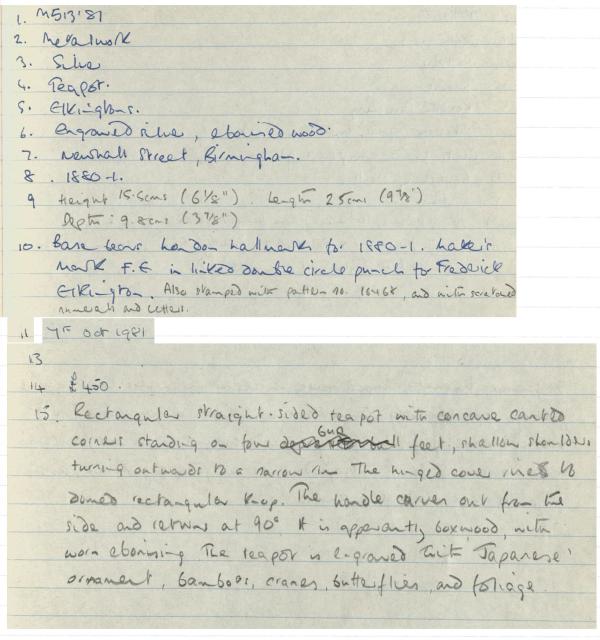 1. M513'81
2. Metalwork
3. Silver
4. Teapot.
5. Elkingtons.
6. engraved silver, ebonised wood.
7. Newhall Street, Birmingham.
8. 1880-1.
9 Height 15.5cms (6 1/8") : Length 25cms (9 7/8")
Depth: 9.8cms (3 7/8")
10. Base bears London hallmarks for 1880-1. Maker's
mark F.E in linked double circle punch for Frederick
Elkington. Also stamped with pattern no. 16468, and with scratched
numerals and letters.
11 Oct 1981
13
14 £450.
15. Rectangular straight-sided teapot with concave canted
corners standing on four bun feet, shallow shoulders
turning outwards to a narrow rim. The hinged cover rises to
domed rectangular knop. The handle curves out from the
side and returns at 90°. It is apparently boxwood, with
worn ebonising. The teapot is engraved with 'Japanese'
ornament, bamboos, cranes, butterflies, and foliage.